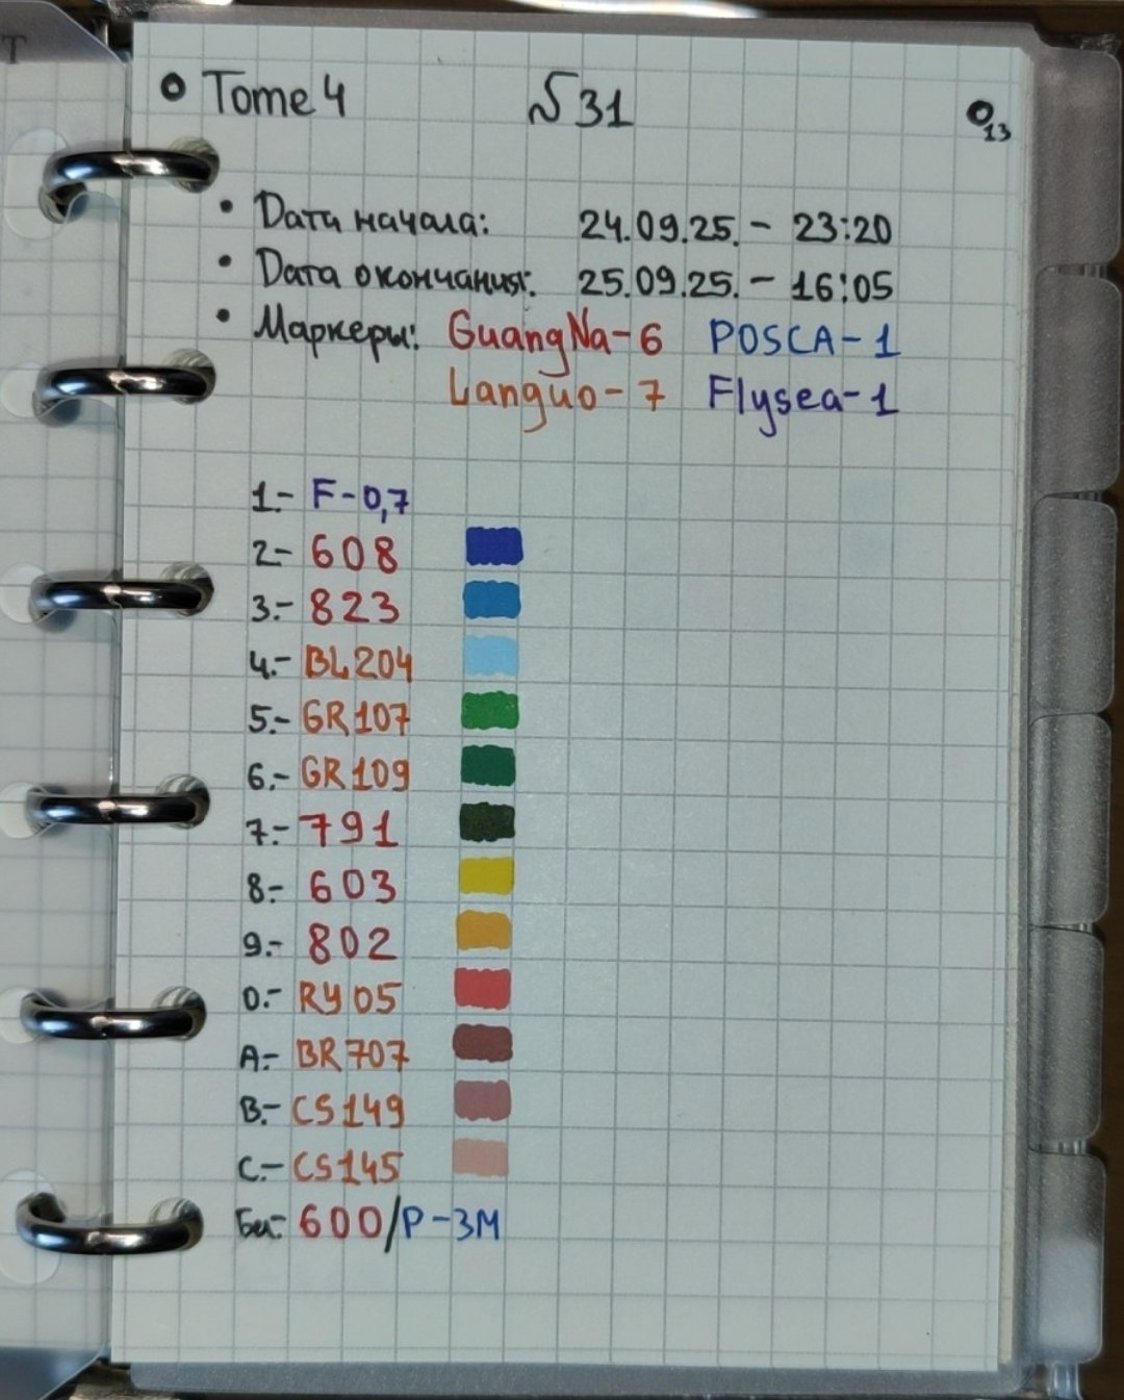 Tome 4 №31 13
Дата начала: 24.09.25. - 23:20
Дата окончания: 25.09.25. - 16:05
Маркеры: GuangNa-6 POSCA-1
Languo-7 Flysea-1
1.- F-0,7
2- 608
3.- 823
4.- BL204
5.- GR107
6.- GR109
7.- 791
8.- 603
9.- 802
0.- RY05
A.- BR707
B.- CS149
C.- CS145
Бл.- 600/P-3M